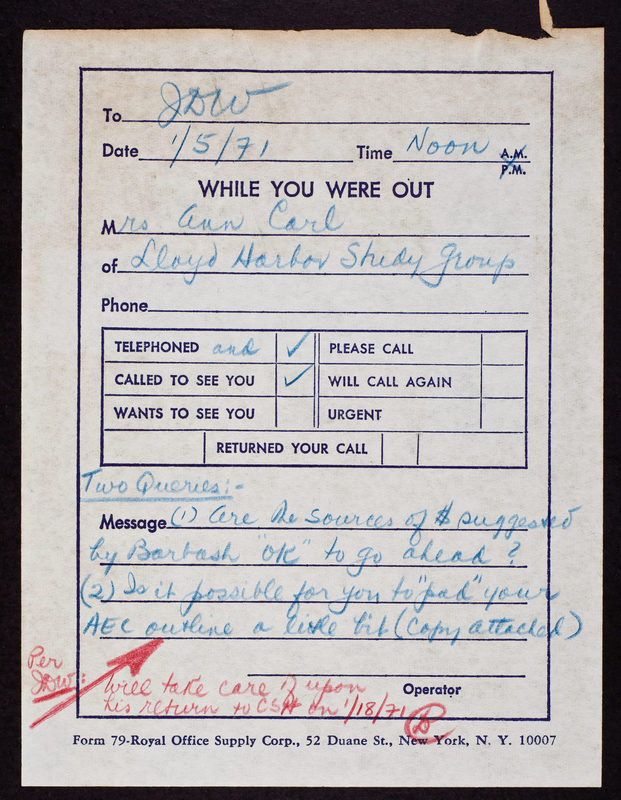 To JDW
Date 1/5/71 Time Noon A.M.
P.M.
WHILE YOU WERE OUT
Mrs Ann Carl
of Lloyd Harbor Study Group
Phone
TELEPHONED and ✓ PLEASE CALL
CALLED TO SEE YOU ✓ WILL CALL AGAIN
WANTS TO SEE YOU URGENT
RETURNED YOUR CALL
Two Queries:-
Message (1) Are the sources of $ suggested
by Barbash "OK" to go ahead?
(2) Is it possible for you to "pad" your
AEC outline a little bit (Copy attached)
Per
JDW:
will take care of upon
his return to CSH on 1/18/71
Operator
Form 79-Royal Office Supply Corp., 52 Duane St., New York, N. Y. 10007